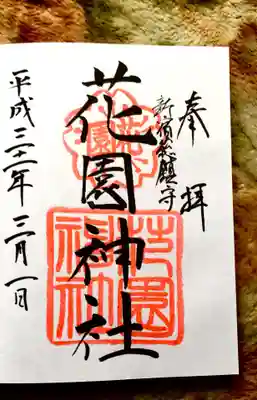 奉拝
新宿総鎮守
花園神社
花園神社
平成三十一年三月一日